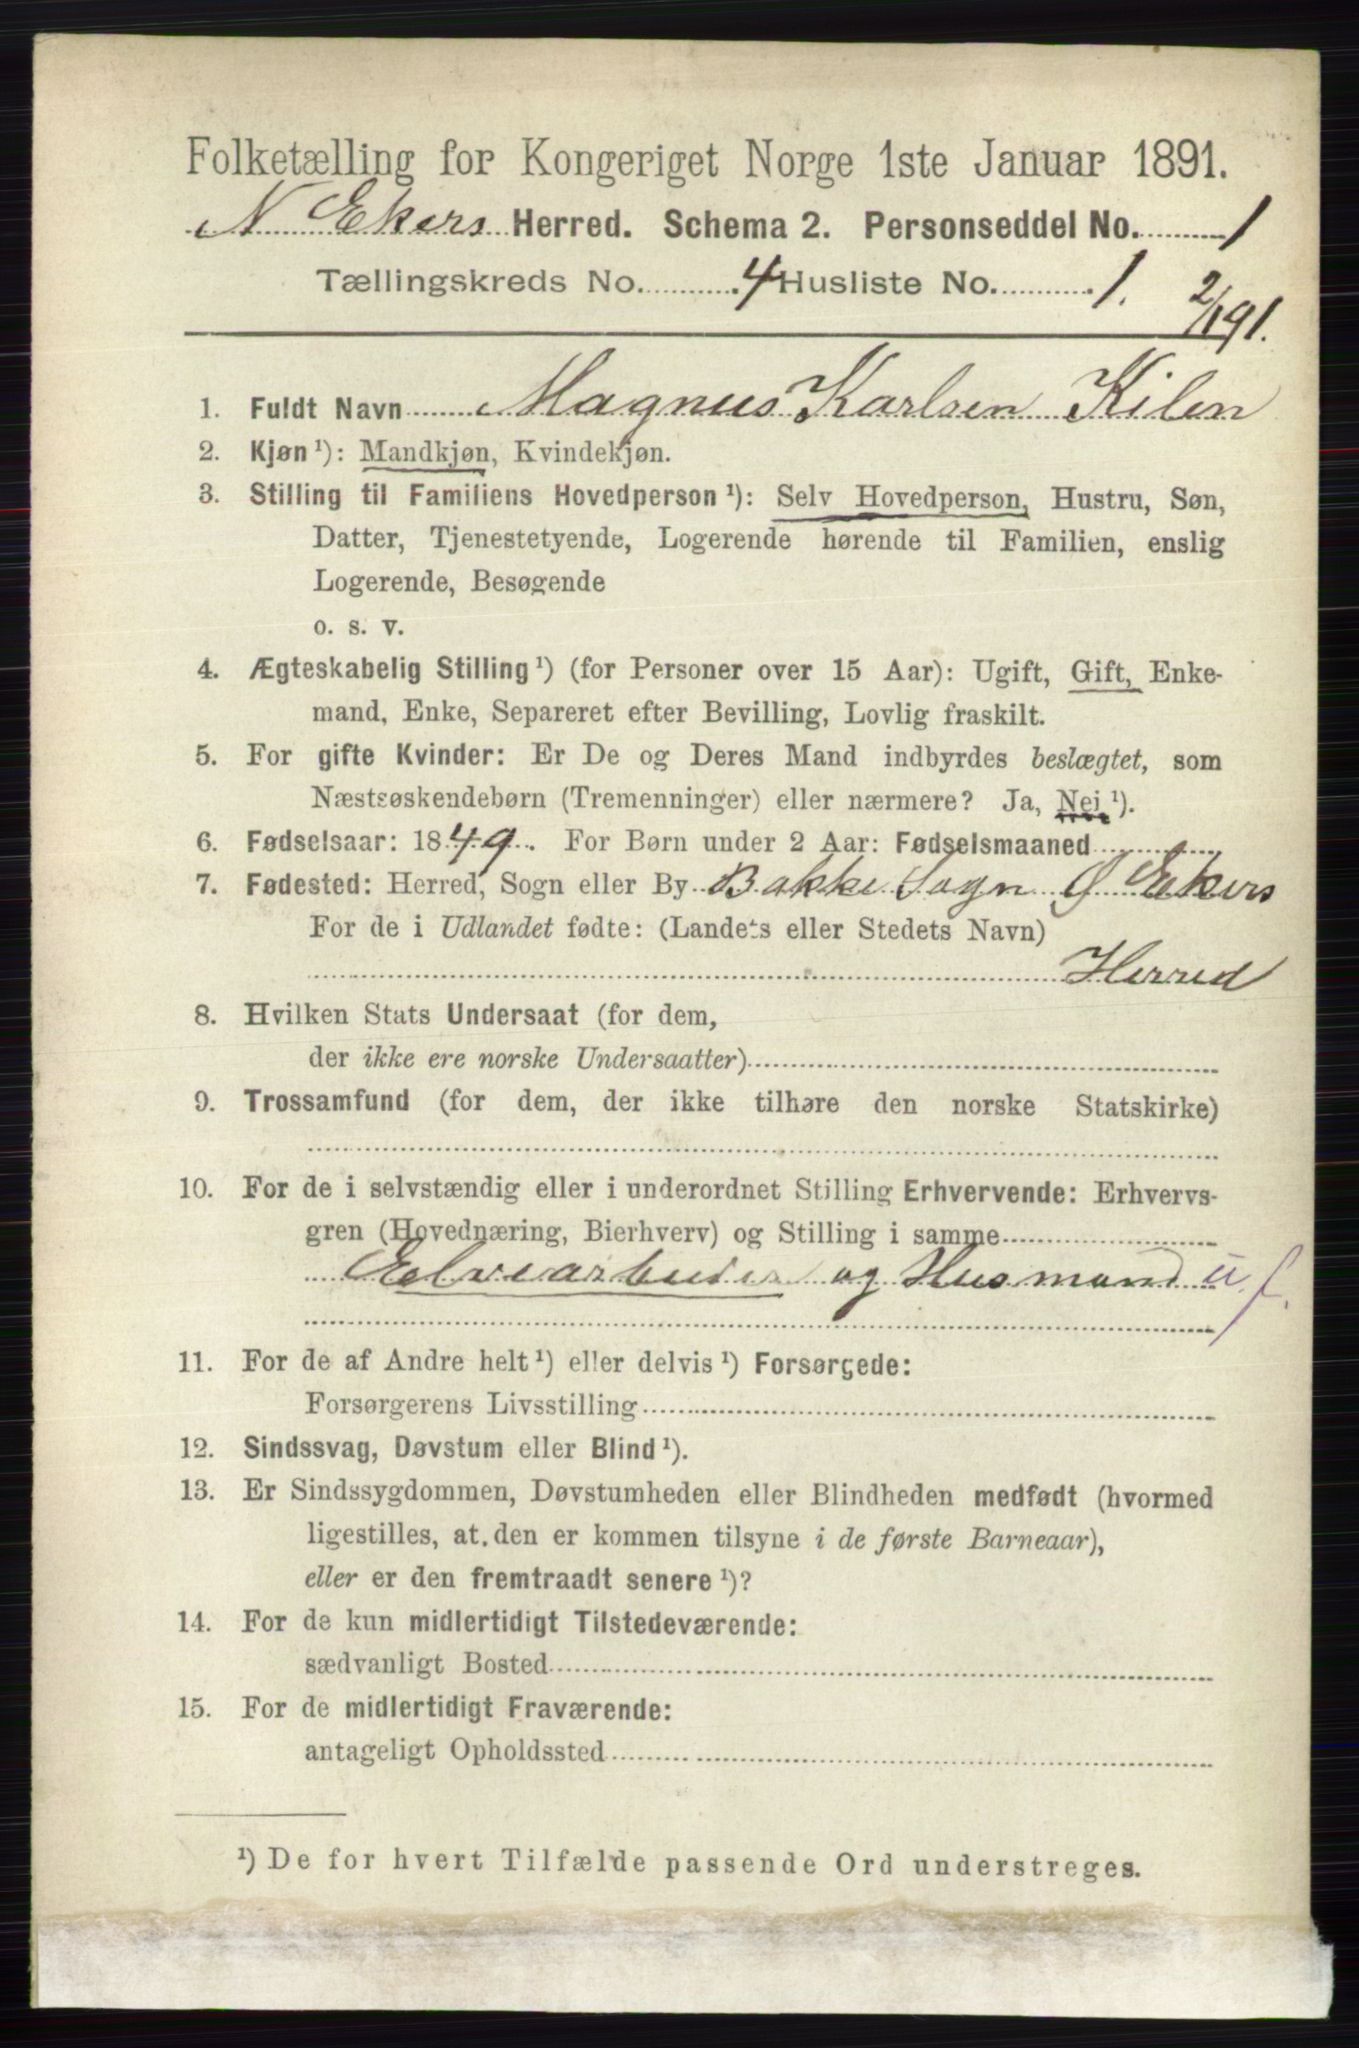 Folketælling for Kongeriget Norge 1ste Januar 1891.
N Ekers Herred. Schema 2. Personseddel No. 1
Tællingskreds No. 4 Husliste No. 1.
2/1 91.
1. Fuldt Navn Magnus Karlsen Kilen
2. Kjøn ¹): Mandkjøn, Kvindekjøn.
3. Stilling til Familiens Hovedperson ¹): Selv Hovedperson, Hustru, Søn,
Datter, Tjenestetyende, Logerende hørende til Familien, enslig
Logerende, Besøgende
o. s. v.
4. Ægteskabelig Stilling ¹) (for Personer over 15 Aar): Ugift, Gift, Enke-
mand, Enke, Separeret efter Bevilling, Lovlig fraskilt.
5. For gifte Kvinder: Er De og Deres Mand indbyrdes beslægtet, som
Næstsøskendebørn (Tremenninger) eller nærmere? Ja, Nei ¹).
6. Fødselsaar: 1849. For Børn under 2 Aar: Fødselsmaaned
7. Fødested: Herred, Sogn eller By Bakke Sogn Ø Ekers
For de i Udlandet fødte: (Landets eller Stedets Navn)
Herred
8. Hvilken Stats Undersaat (for dem,
der ikke ere norske Undersaatter)
9. Trossamfund (for dem, der ikke tilhøre den norske Statskirke)
10. For de i selvstændig eller i underordnet Stilling Erhvervende: Erhvervs-
gren (Hovednæring, Bierhverv) og Stilling i samme
Elvearbeider og Husmand u. f.
11. For de af Andre helt ¹) eller delvis ¹) Forsørgede:
Forsørgerens Livsstilling
12. Sindssvag, Døvstum eller Blind ¹).
13. Er Sindssygdommen, Døvstumheden eller Blindheden medfødt (hvormed
ligestilles, at den er kommen tilsyne i de første Barneaar),
eller er den fremtraadt senere ¹)?
14. For de kun midlertidigt Tilstedeværende:
sædvanligt Bosted
15. For de midlertidigt Fraværende:
antageligt Opholdssted
¹) De for hvert Tilfælde passende Ord understreges.